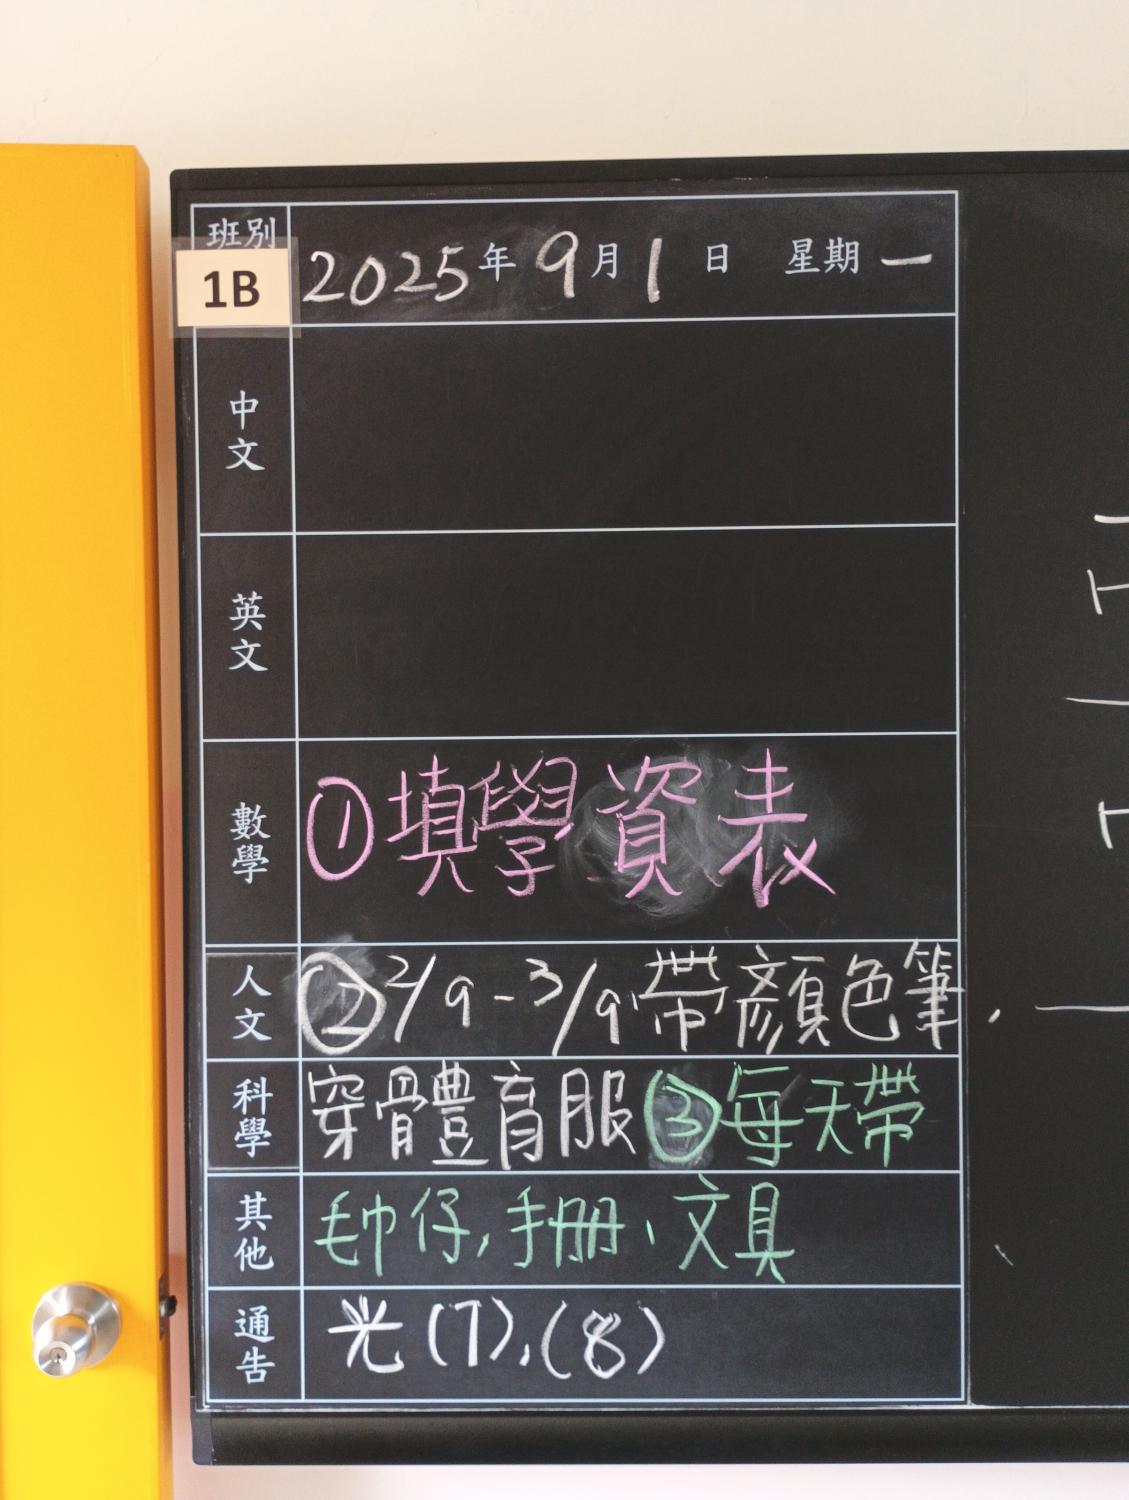 班別
1B
2025年9月1日 星期一
中文
英文
數學
①填學資表
人文
②2/9-3/9帶顏色筆,
科學
穿體育服③每天帶
其他
毛巾仔,手冊、文具
通告
光(7),(8)